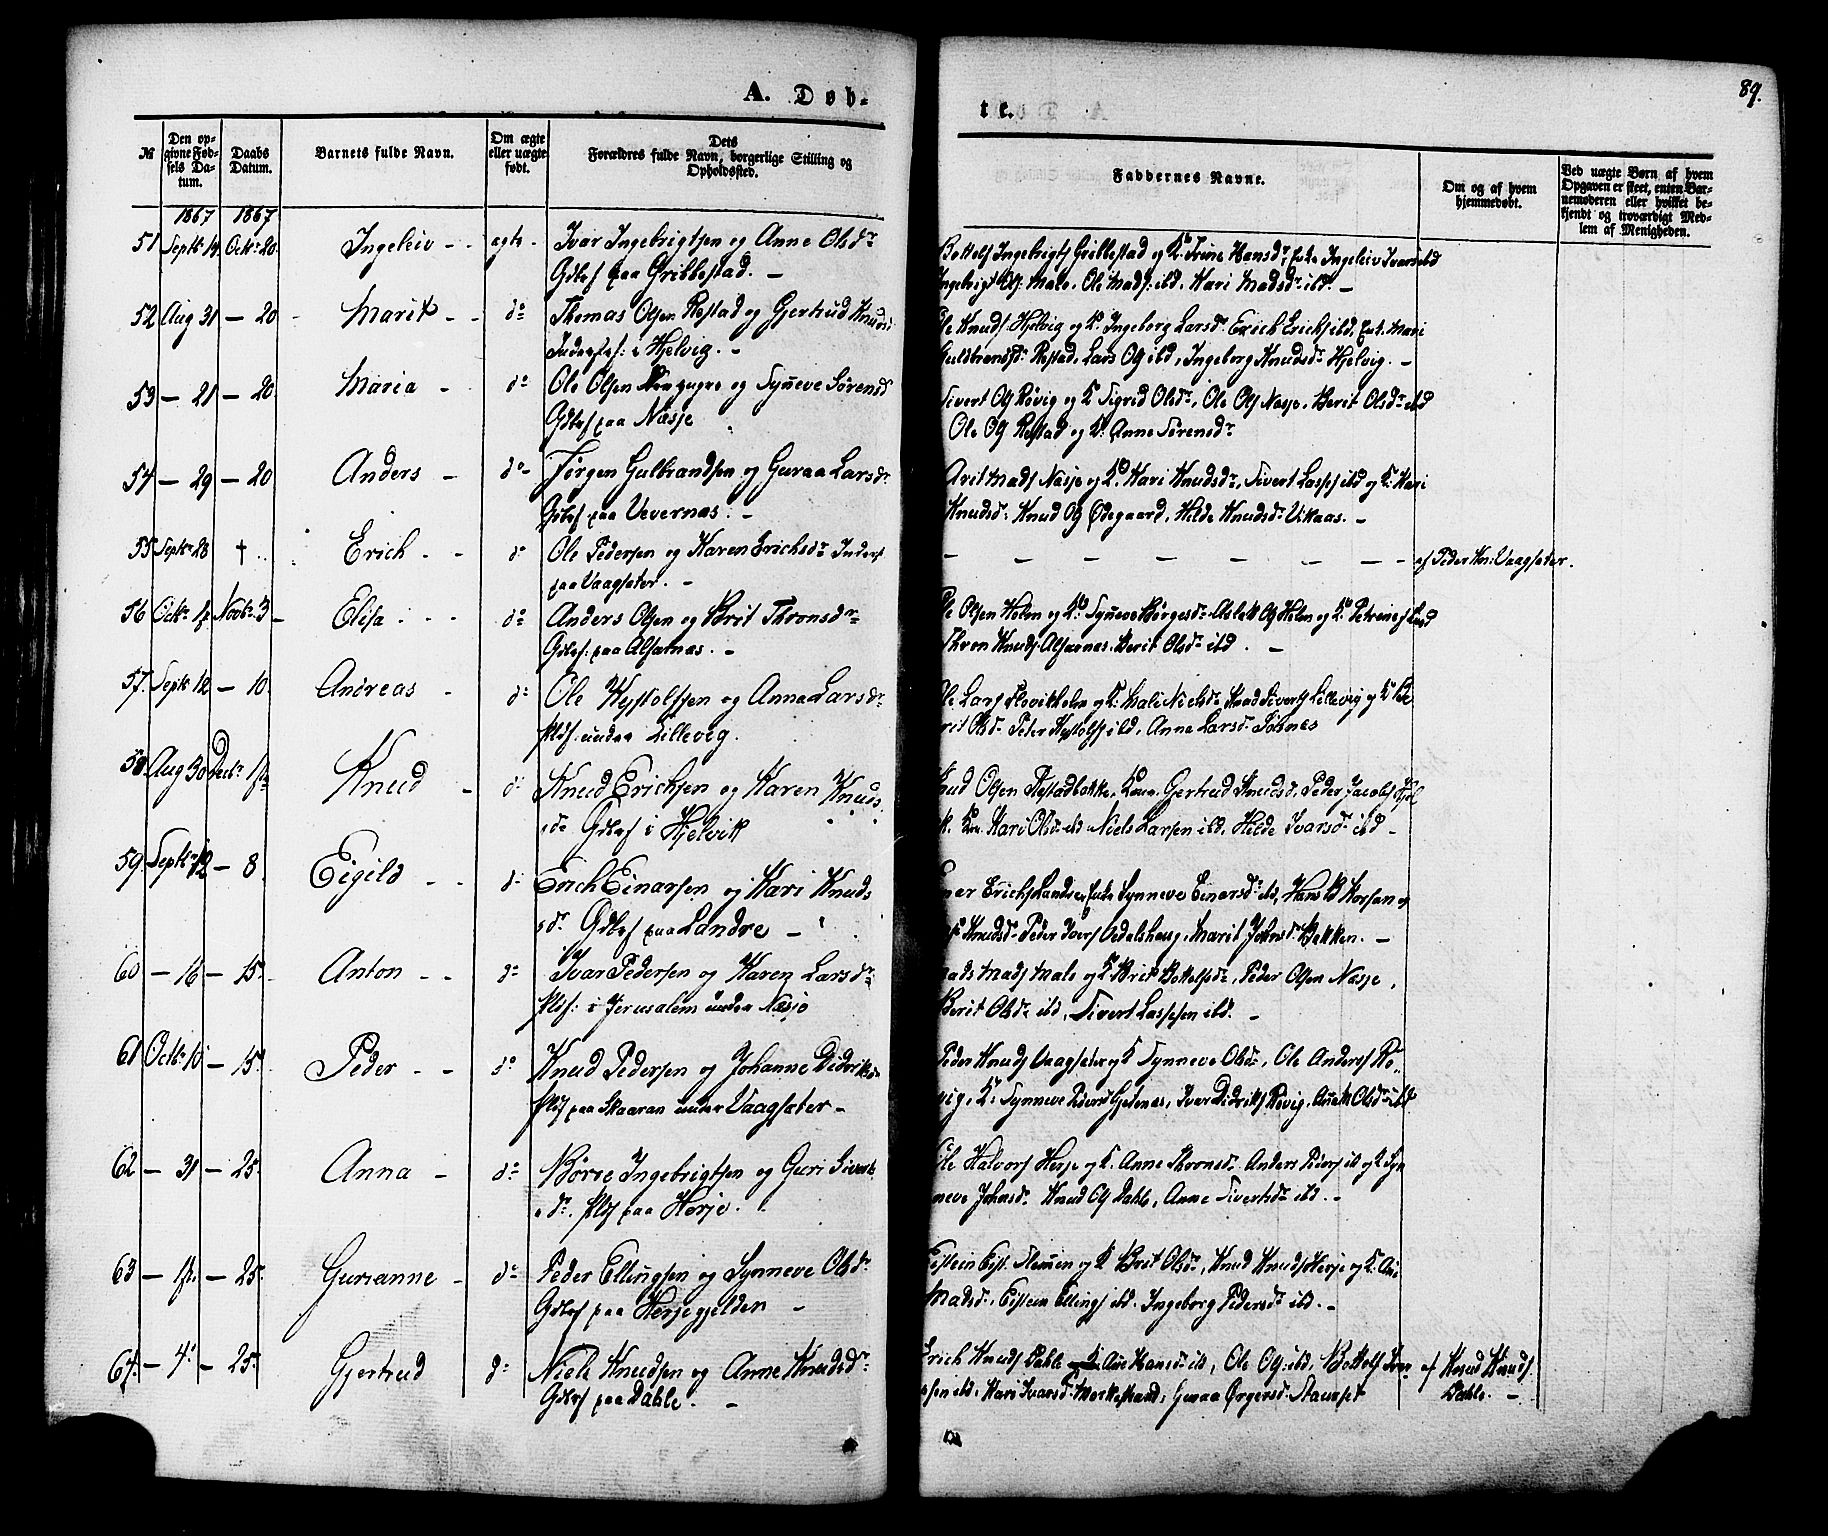 89.
A. Døb-
te.
№
Den op-
givne Fød-
sels Da-
tum.
Daabs
Datum.
Barnets fulde Navn.
Om ægte
eller uægte
født.
Dets
Forældres fulde Navn, borgerlige Stilling og
Opholdssted.
Faddernes Navne.
Om og af hvem
hjemmedøbt.
Ved uægte Børn af hvem
Opgaven er skeet, enten Bar-
nemoderen eller hvilket be-
kjendt og troværdigt Med-
lem af Menigheden.
1867 1867
51 Septr 14. Octr 20 Ingeleiv - - egte - Ivar Ingebrigtsen og Anne Olsdr
Gdbrf paa Gribbestad. -
Bottolf Ingebrigts Gribbestad og Ko Trine Hansdr, Enke Ingeleiv Ivarsd ibd
Male. Ole Mads: ibd. Kari Madsdr ibd. -
52 Aug 31 - 20 - Marit - - do Thomas Olsen Restad og Gjertrud Knudsd
i Hjelvig. -
Knuds Hjelvig og K. Ingeborg Larsdr Erich Erichs ibd, Enk. Mari
Gulbransdr Restad, Lars Ols ibd, Ingeborg Knudsdr Hjelvig. -
53 - 21 - 20 Maria - do Ole Olsen og Synneve Sørensd
Gdbrf paa Næsje
Sivert Ols Røvig og K Sigrid Olsdr, Ole Ols Næsje. Berit Olsdr ibd
Ole Ols Restad og K. Anne Sørensdr
54 - 29 - 20 Anders - do - Jørgen Gulbrandsen og Guraa Larsdr
Gdbrf paa Vevernæs. -
Mads Næsje og Ko Kari Knudsdr, Sivert Lasses ibd og K. Kari
Knudsdr Knud Ols Ødegaard, Hilde Knudsdr Vikaas. -
55 Septr 28 † Erich - - do Ole Pedersen og Karen Erichsdr Inderst
paa Vaagsæter. -
- - - - - - - af Peder Kn: Vaagsæter.
56 Octr Novbr 3 - Elisa - - - do Anders Olsen og Brit Thronsdr
Gdbrf: paa Alfarnæs. -
Olsen Holm og Ko Synneve Børgesdr Aslak Ols Holm og Ko
Thron Knuds Alfarnes. Berit Olsdr ibd. -
57. Septr 12 - 10. Andreas - do Ole og Anna Larsdr
Plds: under Lillevig.
Ole Lars K. Mali Nielsdr Knud Siverts Lillevig og Ko
Olsdr Peder ibd, Anne Larsdr
58 Aug 30 Decbr 1ste Knud - do Knud Erichsen og Karen Knuds
dr Gdbrf i Hjelvik
Knud Olsen Restadbakke. Kone. Gertrud Knudsd. Peder Jacobs
Kari Olsdr ibd Niels Larsen ibd, Hilde Ivarsdr ibd -
59. Septr 12 - 8 Eigild - - do Erich Einarsen og Kari Knuds
dr Gdbrf paa Landre -
Einar Erichs Landre, Enke Synneve Einersdr ibd,
Knudsdr Peder Ivers Marit Johnsdr Bakken. -
60 - 16 - 15. Anton - - do Ivar Pedersen og Karen Larsdr
Plds: i Jerusalem under Næsje
Mads Mads Male og K Brit Bottolfsdr, Peder Olsen Næsje,
Berit Olsdr ibd, Sivert Lassesen ibd. -
61 Octbr 10 - 15. Peder - - do Knud Pedersen og Johanne Didriksdr
Plds paa Skaaran under Vaagsæter -
Peder Knuds Vaagsæter og K Synneve Olsdr, Ole Anders Rø-
vig, K. Synneve Ivar Didriks Røvig. Olsdr ibd
62 - 31 - 25. Anna - do Børre Ingebrigtsen og Guri Siverts
dr. Plds paa Herje.
Ole Halvors Herje og K. Anne Thronsdr. Anders Peders ibd og K Syn
neve Johnsdr Knud Ols Dahle, Anne Sivertsdr ibd. -
63 - - 25. Gurianne - do Peder Ellingsen og Synneve Olsdr
Gdbrf paa Herjegjelden -
Eistein og K Brit Olsdr, Knud Knuds Herje og K.
Madsdr. Eistein Ellings ibd. Ingeborg Pedersdr ibd. -
64. - 4. - 25. Gjertrud do Niels Knudsen og Anne Knudsdr
Gdbrf paa Dahle. -
Erich Knuds Dahle K. Ane Hansdr ibd, Ole Ols ibd, Bottolf Iver
sen ibd. Kari Ivarsdr Guraa Ørgersdr Stavset
af Knud Knuds
Dahle. -